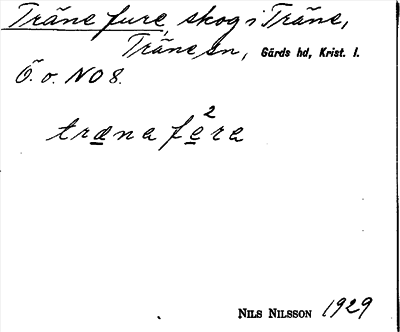 Träne fure, skog i Träne,
Träne sn, Gärds hd, Krist. l.
Ö. o. NO 8.
træna fe²ra
NILS NILSSON 1929